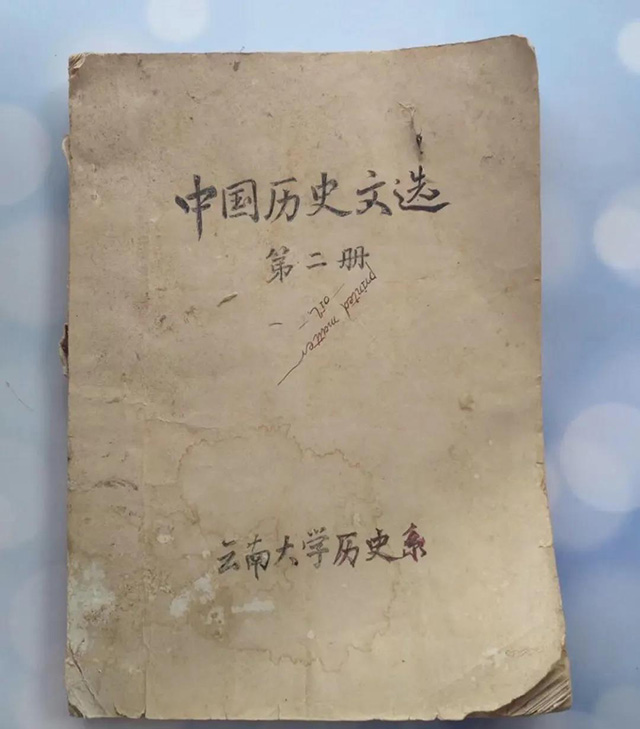 中国历史文选
第二册
printed matter
云南大学历史系